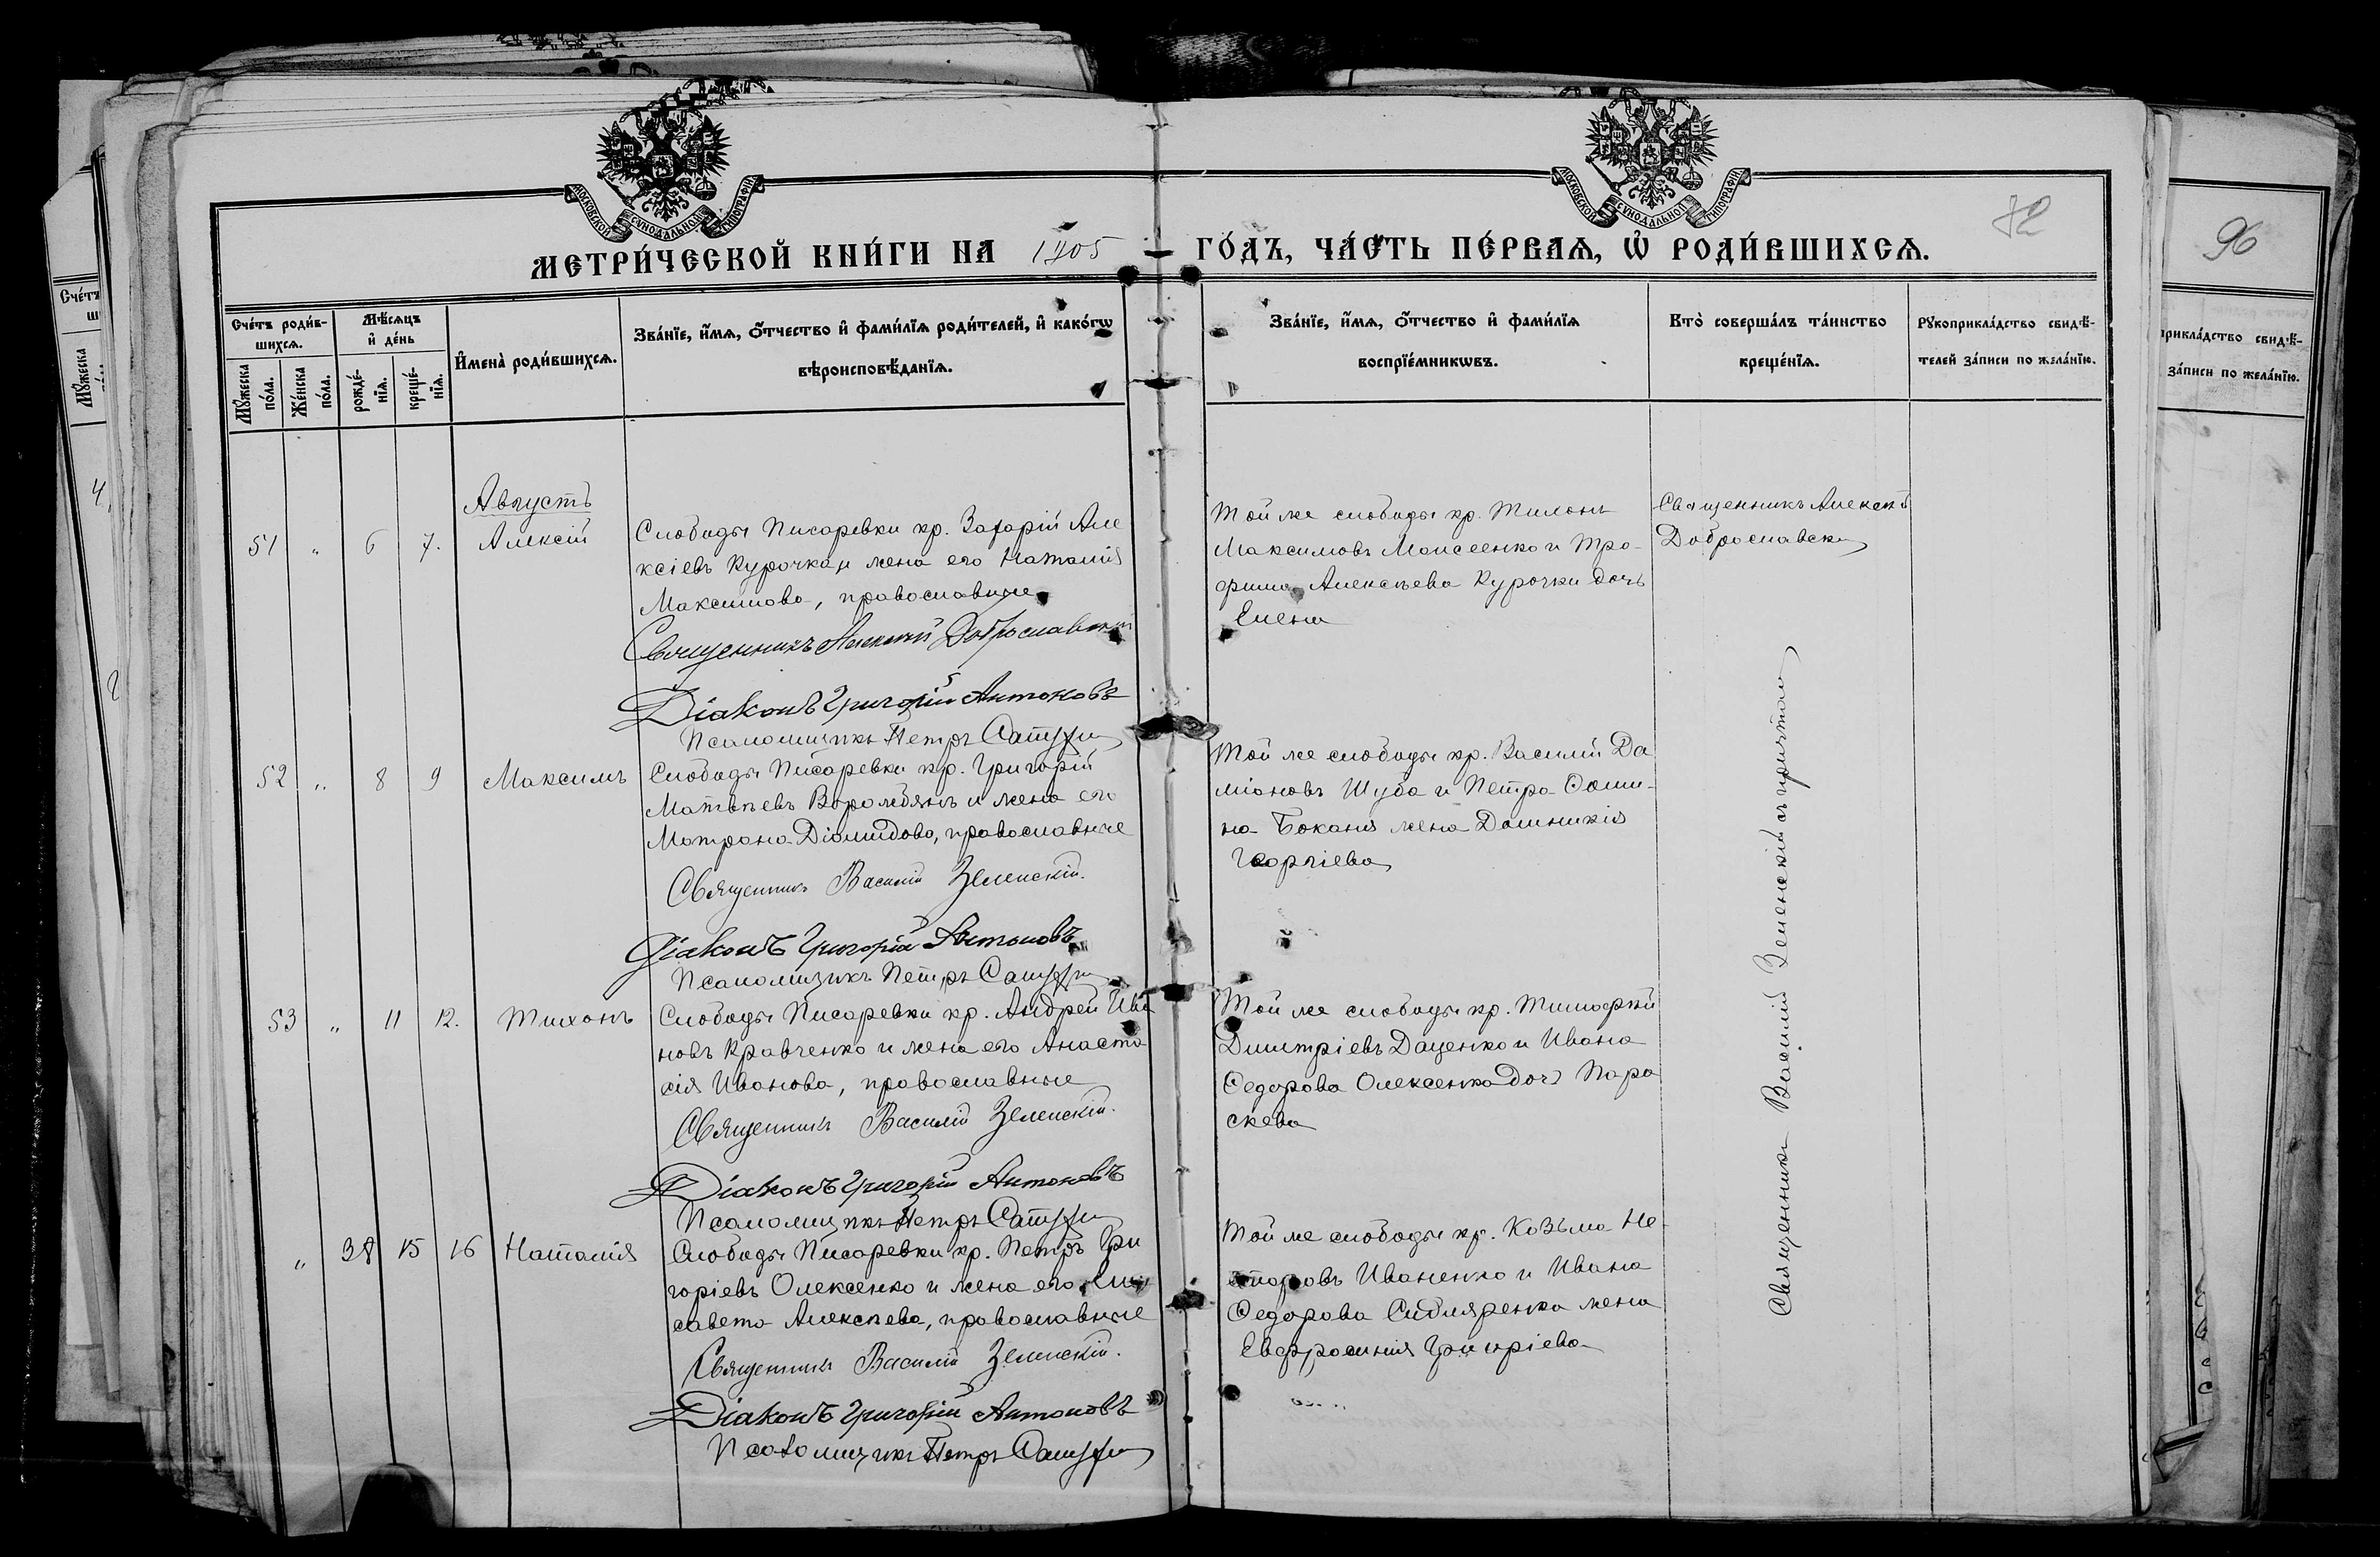 МОСКОВСКОЙ СѴНОДАЛЬНОЙ ТИПОГРАФІИ
МОСКОВСКОЙ СѴНОДАЛЬНОЙ ТИПОГРАФІИ
МЕТРИ́ЧЕСКОЙ КНИ́ГИ НА 1905 ГО́ДЪ, ЧА́СТЬ ПЕ́РВАѦ, Ѡ҆ РОДИ́ВШИХСѦ.
96
Сче́тъ роди́в-
шихсѧ.
Мꙋ́жеска
по́ла.
Же́нска
по́ла.
Мѣ́сѧцъ
и҆ де́нь
рожде́-
нїѧ.
креще́-
нїѧ.
И҆мена̀ роди́вшихсѧ.
Зва́нїе, и҆́мѧ, ѻ҆́тчество и҆ фами́лїѧ роди́телей, и҆ како́гѡ
вѣроисповѣ́данїѧ.
Зва́нїе, и҆́мѧ, ѻ҆́тчество и҆ фами́лїѧ
воспрїе́мникѡвъ.
Кто̀ соверша́лъ та́инство
креще́нїѧ.
Рꙋкоприкла́дство свидѣ́-
телей за́писи по жела́нїю.
прикла́дство свидѣ́-
за́писи по жела́нїю.
Августъ
51 " 6 7. Алексій
Слободы Писаревки кр. Захарій Але
ксіевъ Курочка и жена его Наталія
Максимова, православные
Священникъ Алексій Доброславскій
Діаконъ Григорій Антоновъ
Псаломщикъ Петръ
Той же слободы кр. Тихонъ
Максимовъ Моисеенко и Тро-
фима Алексѣева Курочки дочь
Елена
Священникъ Алексѣй
Доброславскій
52 " 8 9 Максимъ
Слободы Писаревки кр. Григорій
Матвѣевъ Ворожбянъ и жена его
Матрона Діомидова, православные
Священникъ Василій Зеленскій.
Діаконъ Григорій Антоновъ
Псаломщикъ Петръ
Той же слободы кр. Василій Да
міановъ Шуба и Петра Ѳоми-
на Боканя жена Домникія
Георгіева
53 " 11 12. Тихонъ
Слободы Писаревки кр. Андрей Ива
новъ Кравченко и жена его Анаста
сія Иванова, православные
Священникъ Василій Зеленскій.
Діаконъ Григорій Антоновъ
Псаломщикъ Петръ
Той же слободы кр. Тимофей
Димитріевъ Даценко и Ивана
Ѳедорова Олексенка дочь Пара
скева
" 38 15 16 Наталія
Слободы Писаревки кр. Петръ Гри
горіевъ Олексенко и жена его Ели
савета Алексѣева, православные
Священникъ Василій Зеленскій.
Діаконъ Григорій Антоновъ
Псаломщикъ Петръ
Той же слободы кр. Козьма Не-
сторовъ Иваненко и Ивана
Ѳедорова жена
Евфросинія Григоріева
Священникъ Василій Зеленскій съ причтомъ